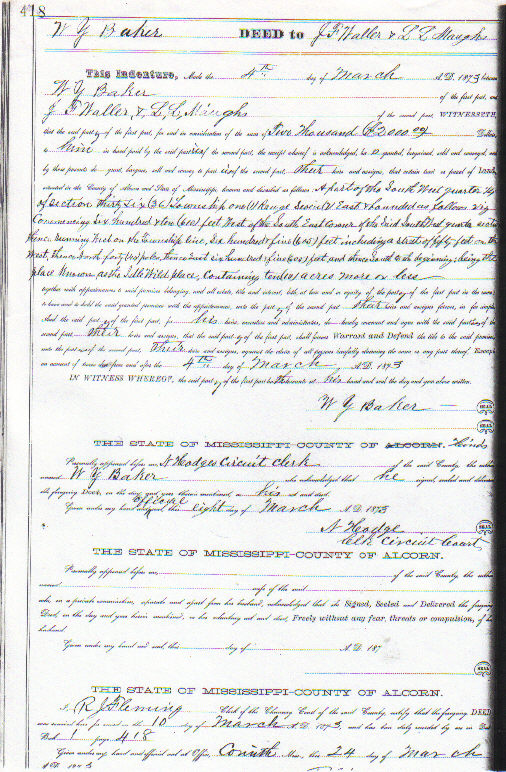 418
W Y Baker DEED to J. F. Waller & L. L. Maughs
This Indenture, Made the 4th day of March A.D. 1873 between
W Y Baker of the first part, and
J. F. Waller & L. L. Maughs of the second part, WITNESSETH,
that the said party of the first part, for and in consideration of the sum of Five Thousand 5000.00 Dollars
to him in hand paid by the said parties of the second part, the receipt whereof is acknowledged, has granted, bargained, sold and conveyed, and
by these presents do grant, bargain, sell and convey to parties of the second part, their heirs and assigns, that certain tract or parcel of LAND,
situated in the County of Alcorn and State of Mississippi, known and described as follows: A part of the South West quarter 1/4
of section thirty six (36) Township one (1) Range Seven (7) East & bounded as follows viz
Commencing Six hundred & ten (610) feet West of the South East Corner of the said South West quarter section
thence running West on the Township line, Six hundred & five (605) feet including a street of fifty feet on the
West, thence North forty two poles, thence East six hundred & five (605) feet and thence South to the beginning, being the
place known as the Idle Wild place, Containing ten (10) acres more or less
together with appurtenances to said premises belonging, and all estate, title and interest, both at law and in equity of the party of the first part in the same,
to have and to hold the said granted premises with the appurtenances, unto the party of the second part their heirs and assigns forever, in fee simple.
And the said party of the first part, for his heirs, executors and administrators, do hereby covenant and agree with the said party of the
second part, their heirs and assigns, that the said party of the first part, shall forever Warrant and Defend the title to the said premises,
unto the party of the second part, their heirs and assigns, against the claim of all persons lawfully claiming the same or any part thereof. Except
on account of taxes from and after the 4th day of March A.D. 1873
IN WITNESS WHEREOF, the said party of the first part hereunto set his hand and seal the day and year above written.
W Y Baker SEAL
SEAL
THE STATE OF MISSISSIPPI-COUNTY OF ALCORN. Hinds
Personally appeared before me, N Hodges Circuit Clerk of the said County, the within
named W Y Baker who acknowledged that he signed, sealed and delivered
the foregoing Deed, on the day and year therein mentioned, as his act and deed.
Given under my hand and official seal, this eight day of March A.D. 1873
N Hodge SEAL
Clk Circuit Court
THE STATE OF MISSISSIPPI-COUNTY OF ALCORN.
Personally appeared before me, of the said County, the within
named wife of the said
who, on a private examination, separate and apart from her husband, acknowledged that she Signed, Sealed and Delivered the foregoing
Deed, on the day and year therein mentioned, as her voluntary act and deed, Freely without any fear, threats or compulsion, of her
husband.
Given under my hand and seal, this day of A.D. 187
SEAL
THE STATE OF MISSISSIPPI-COUNTY OF ALCORN.
I, R J Fleming Clerk of the Chancery Court of the said County, certify that the foregoing DEED
was received here for record on the 10 day of March A.D. 1873, and has been duly recorded by me in Deed
Book 1 page 418
Given under my hand and official seal at Office, Corinth Miss, this 24 day of March
A.D. 1873